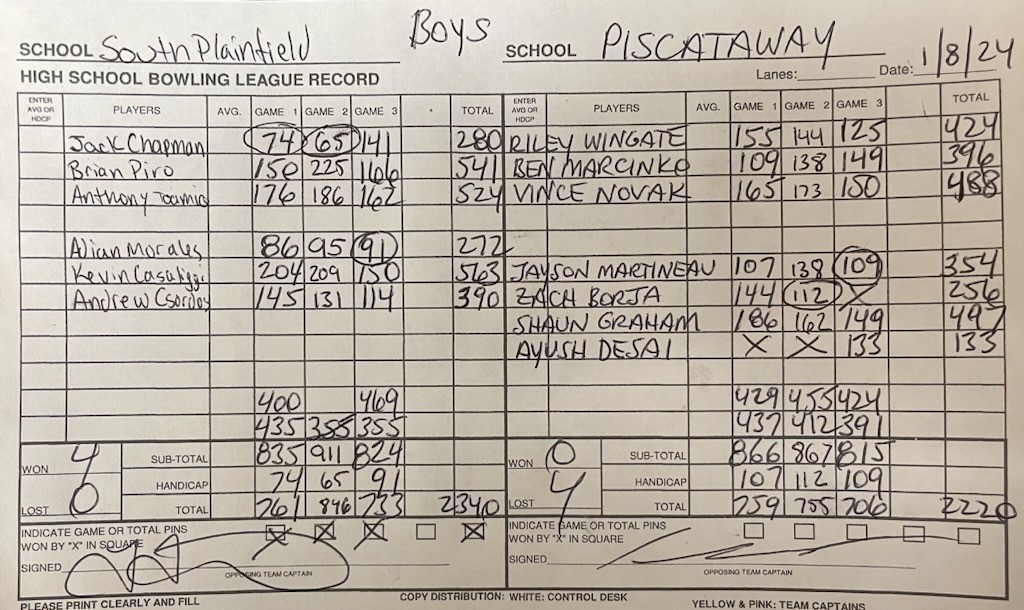 BOYS
SCHOOL South Plainfield SCHOOL PISCATAWAY
HIGH SCHOOL BOWLING LEAGUE RECORD Lanes: Date: 1/8/24
ENTER AVG OR HDCP PLAYERS AVG. GAME 1 GAME 2 GAME 3 TOTAL ENTER AVG OR HDCP PLAYERS AVG. GAME 1 GAME 2 GAME 3 TOTAL
Jack Chapman 74 65 141 280 RILEY WINGATE 155 144 125 424
Brian Piro 150 225 166 541 BEN MARCINKO 109 138 149 396
Anthony 176 186 162 524 VINCE NOVAK 165 173 150 488
Alian Morales 86 95 91 272
Kevin 204 209 150 563 JAYSON MARTINEAU 107 138 109 354
Andrew 145 131 114 390 ZACH BORJA 144 112 X 256
SHAUN GRAHAM 186 162 149 497
AYUSH DESAI X X 133 133
400 469 429 455 424
435 355 355 437 412 391
WON 4 SUB-TOTAL 835 911 824 WON 0 SUB-TOTAL 866 867 815
HANDICAP 74 65 91 HANDICAP 107 112 109
LOST 0 TOTAL 761 846 733 2340 LOST 4 TOTAL 759 755 706 2220
INDICATE GAME OR TOTAL PINS WON BY "X" IN SQUARE X X X X INDICATE GAME OR TOTAL PINS WON BY "X" IN SQUARE
SIGNED SIGNED
OPPOSING TEAM CAPTAIN OPPOSING TEAM CAPTAIN
PLEASE PRINT CLEARLY AND FILL COPY DISTRIBUTION: WHITE: CONTROL DESK YELLOW & PINK: TEAM CAPTAINS